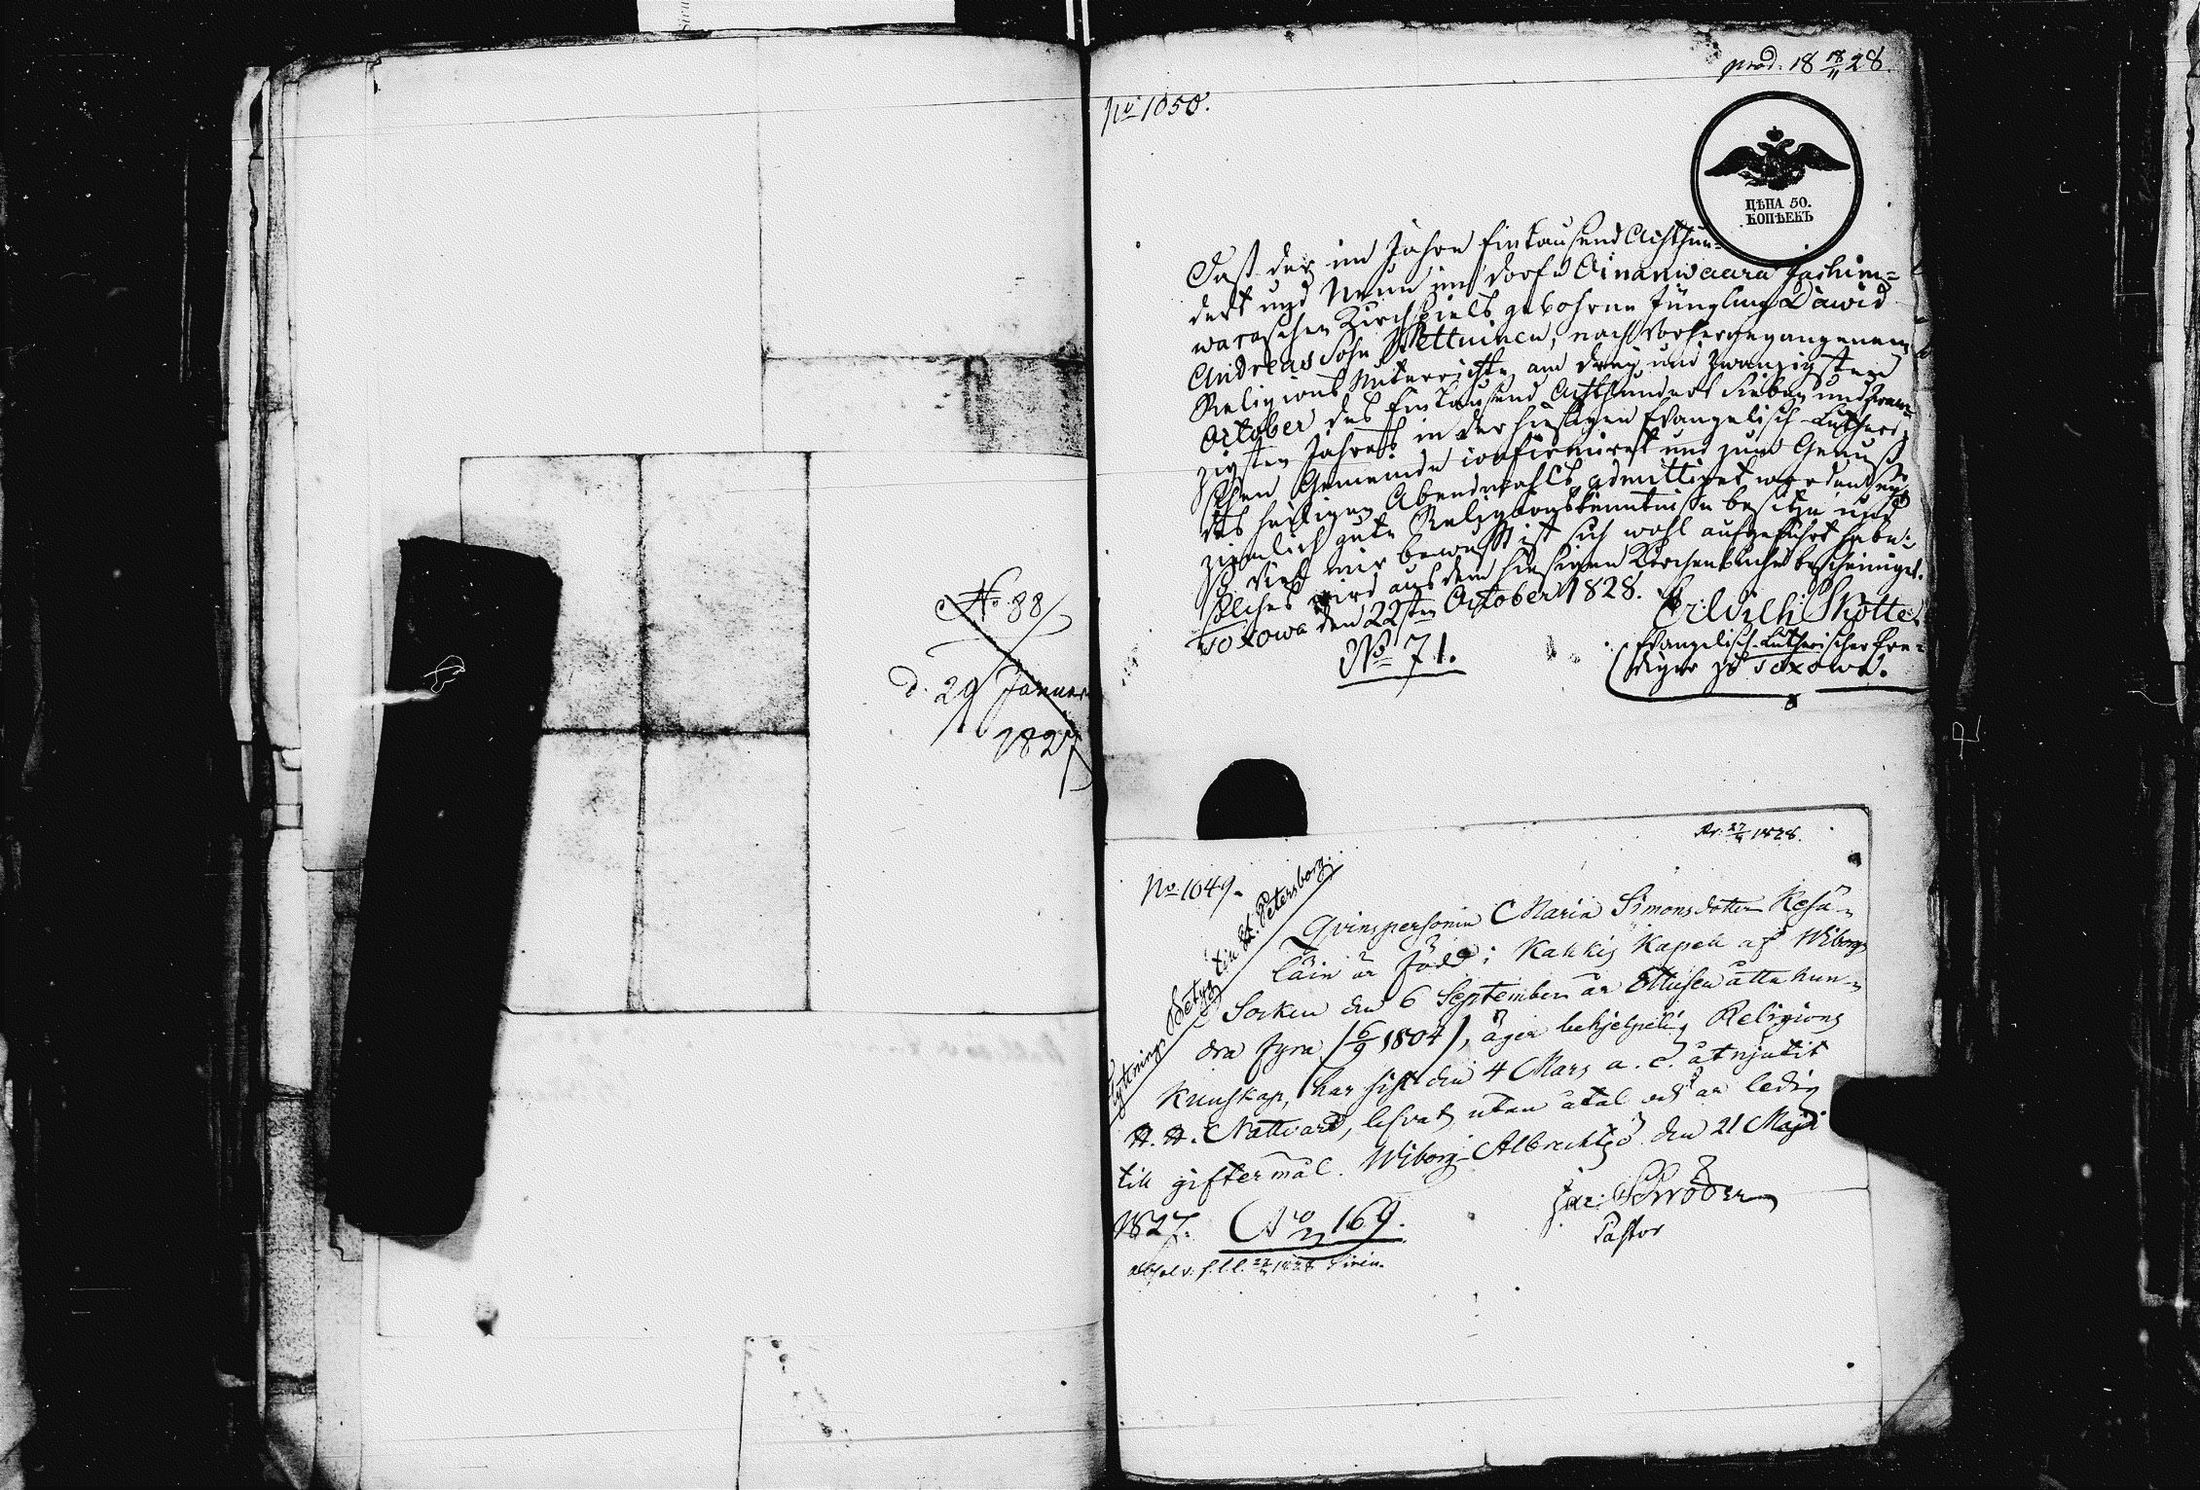 No. 88
d. 29 Januar
1827
prod. 18 18/11 28.
No 1050.
ЦѢНА 50.
КОПѢЕКЪ
Daß der im Jahre Eintausend Achthun-
dert und Neun im Dorfe Ainanwaara Jachim-
waraschen Kirchspiels gebohrne Jüngling Dawid
Andreas Sohn Pettuinen, nach vorhergegangenem
Religions Unterrichte, am drey und zwanzigsten
October des Eintausend Achthundert Sieben und zwan-
zigsten Jahres in der hiesigen Evangelisch-Lutheri-
schen Gemeinde confirmiret und zum Genuß
des heiligen Abendmahls admittiret worden sey
ziemlich gute Religionskenntniße besitze und
so viel mir bewußt ist sich wohl aufgeführt habe:
solches wird aus dem hiesigen Kirchenbuche bescheiniget.
Toxowa den 22sten October 1828.
Skotte
No 71.
Evangelisch-Lutherischer Pre-
diger zu Toxowa.
27/11 1828.
No 1049.
Flyttnings Betyg till St. Petersborg.
Qvinspersonen Maria Simonsdotter Resä-
läin är född i Kakkis Kapell af Wiborgs
Socken den 6 September år Ettusen åtta hun-
dra fyra (6/9 1804), äger behjelpelig Religions
Kunskap, har sist den 4 Mars a. c. åtnjutit
H. H. Nattvard, lefvat utan åtal och är ledig
till giftermål. Wiborg Albrechtsö den 21 Maji
1827. No 169.
Schröder
Pastor
absolv. 1828